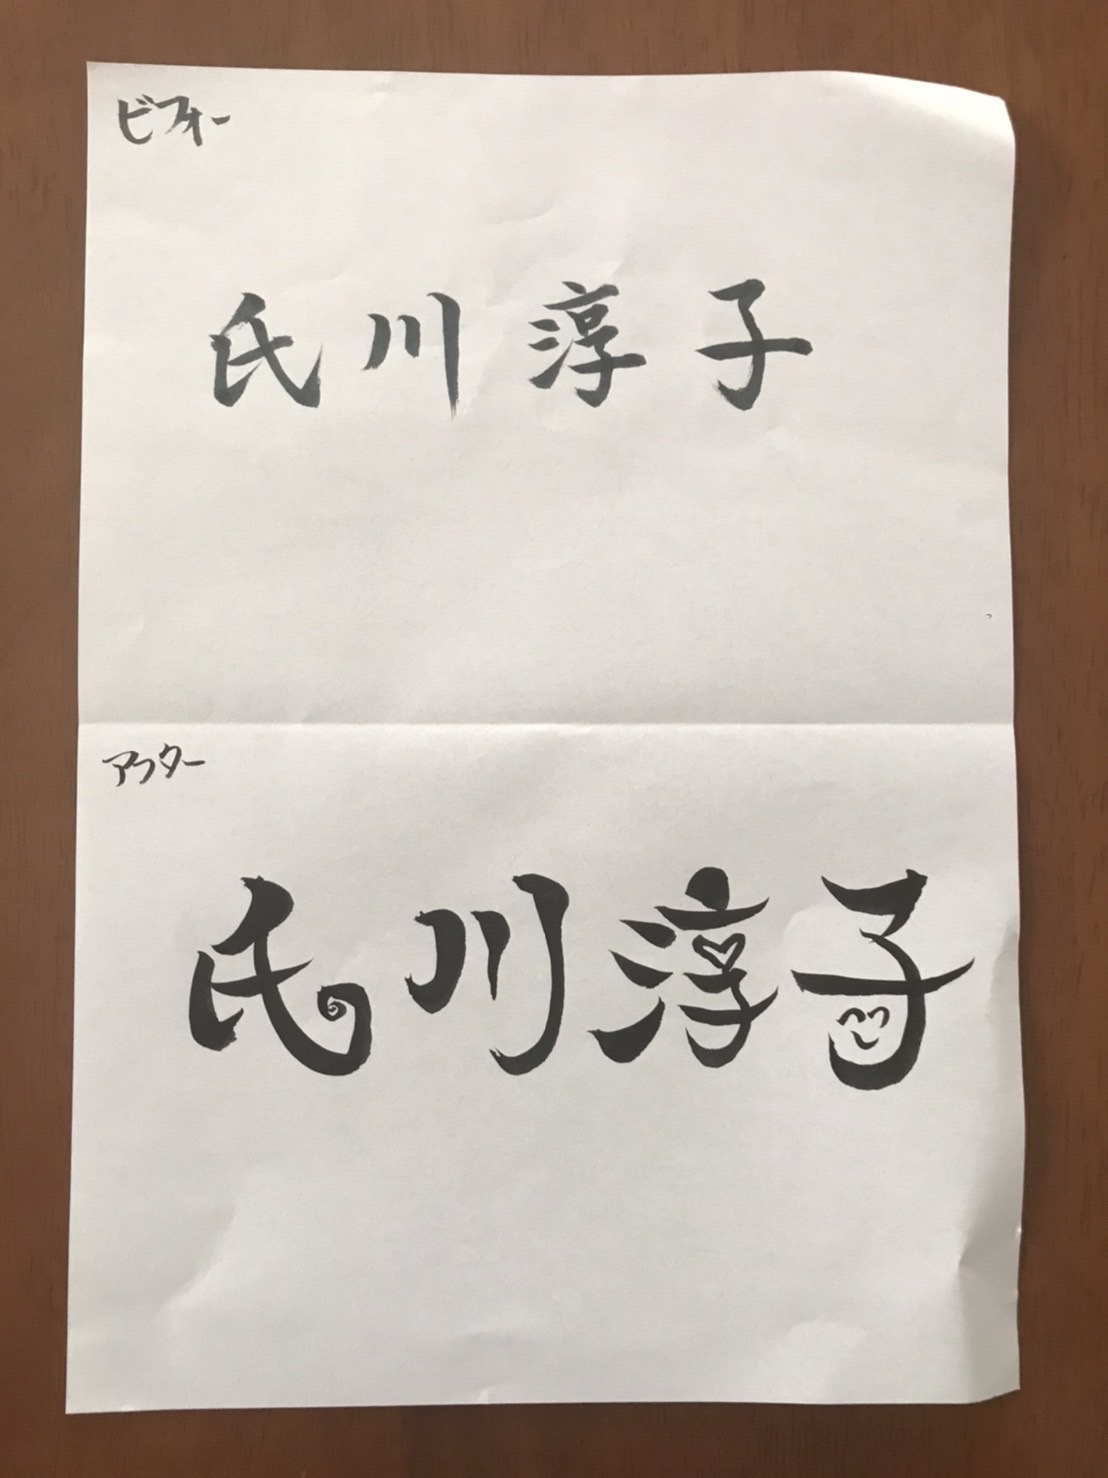 ビフォー
氏川淳子
アフター
氏川淳子